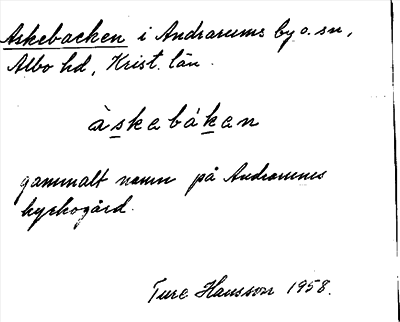 Askebacken i Andrarums by o. sn,
Albo hd, Krist. län.
àskabákan
gammalt namn på Andrarums
kyrkogård.
Ture Hansson 1958.